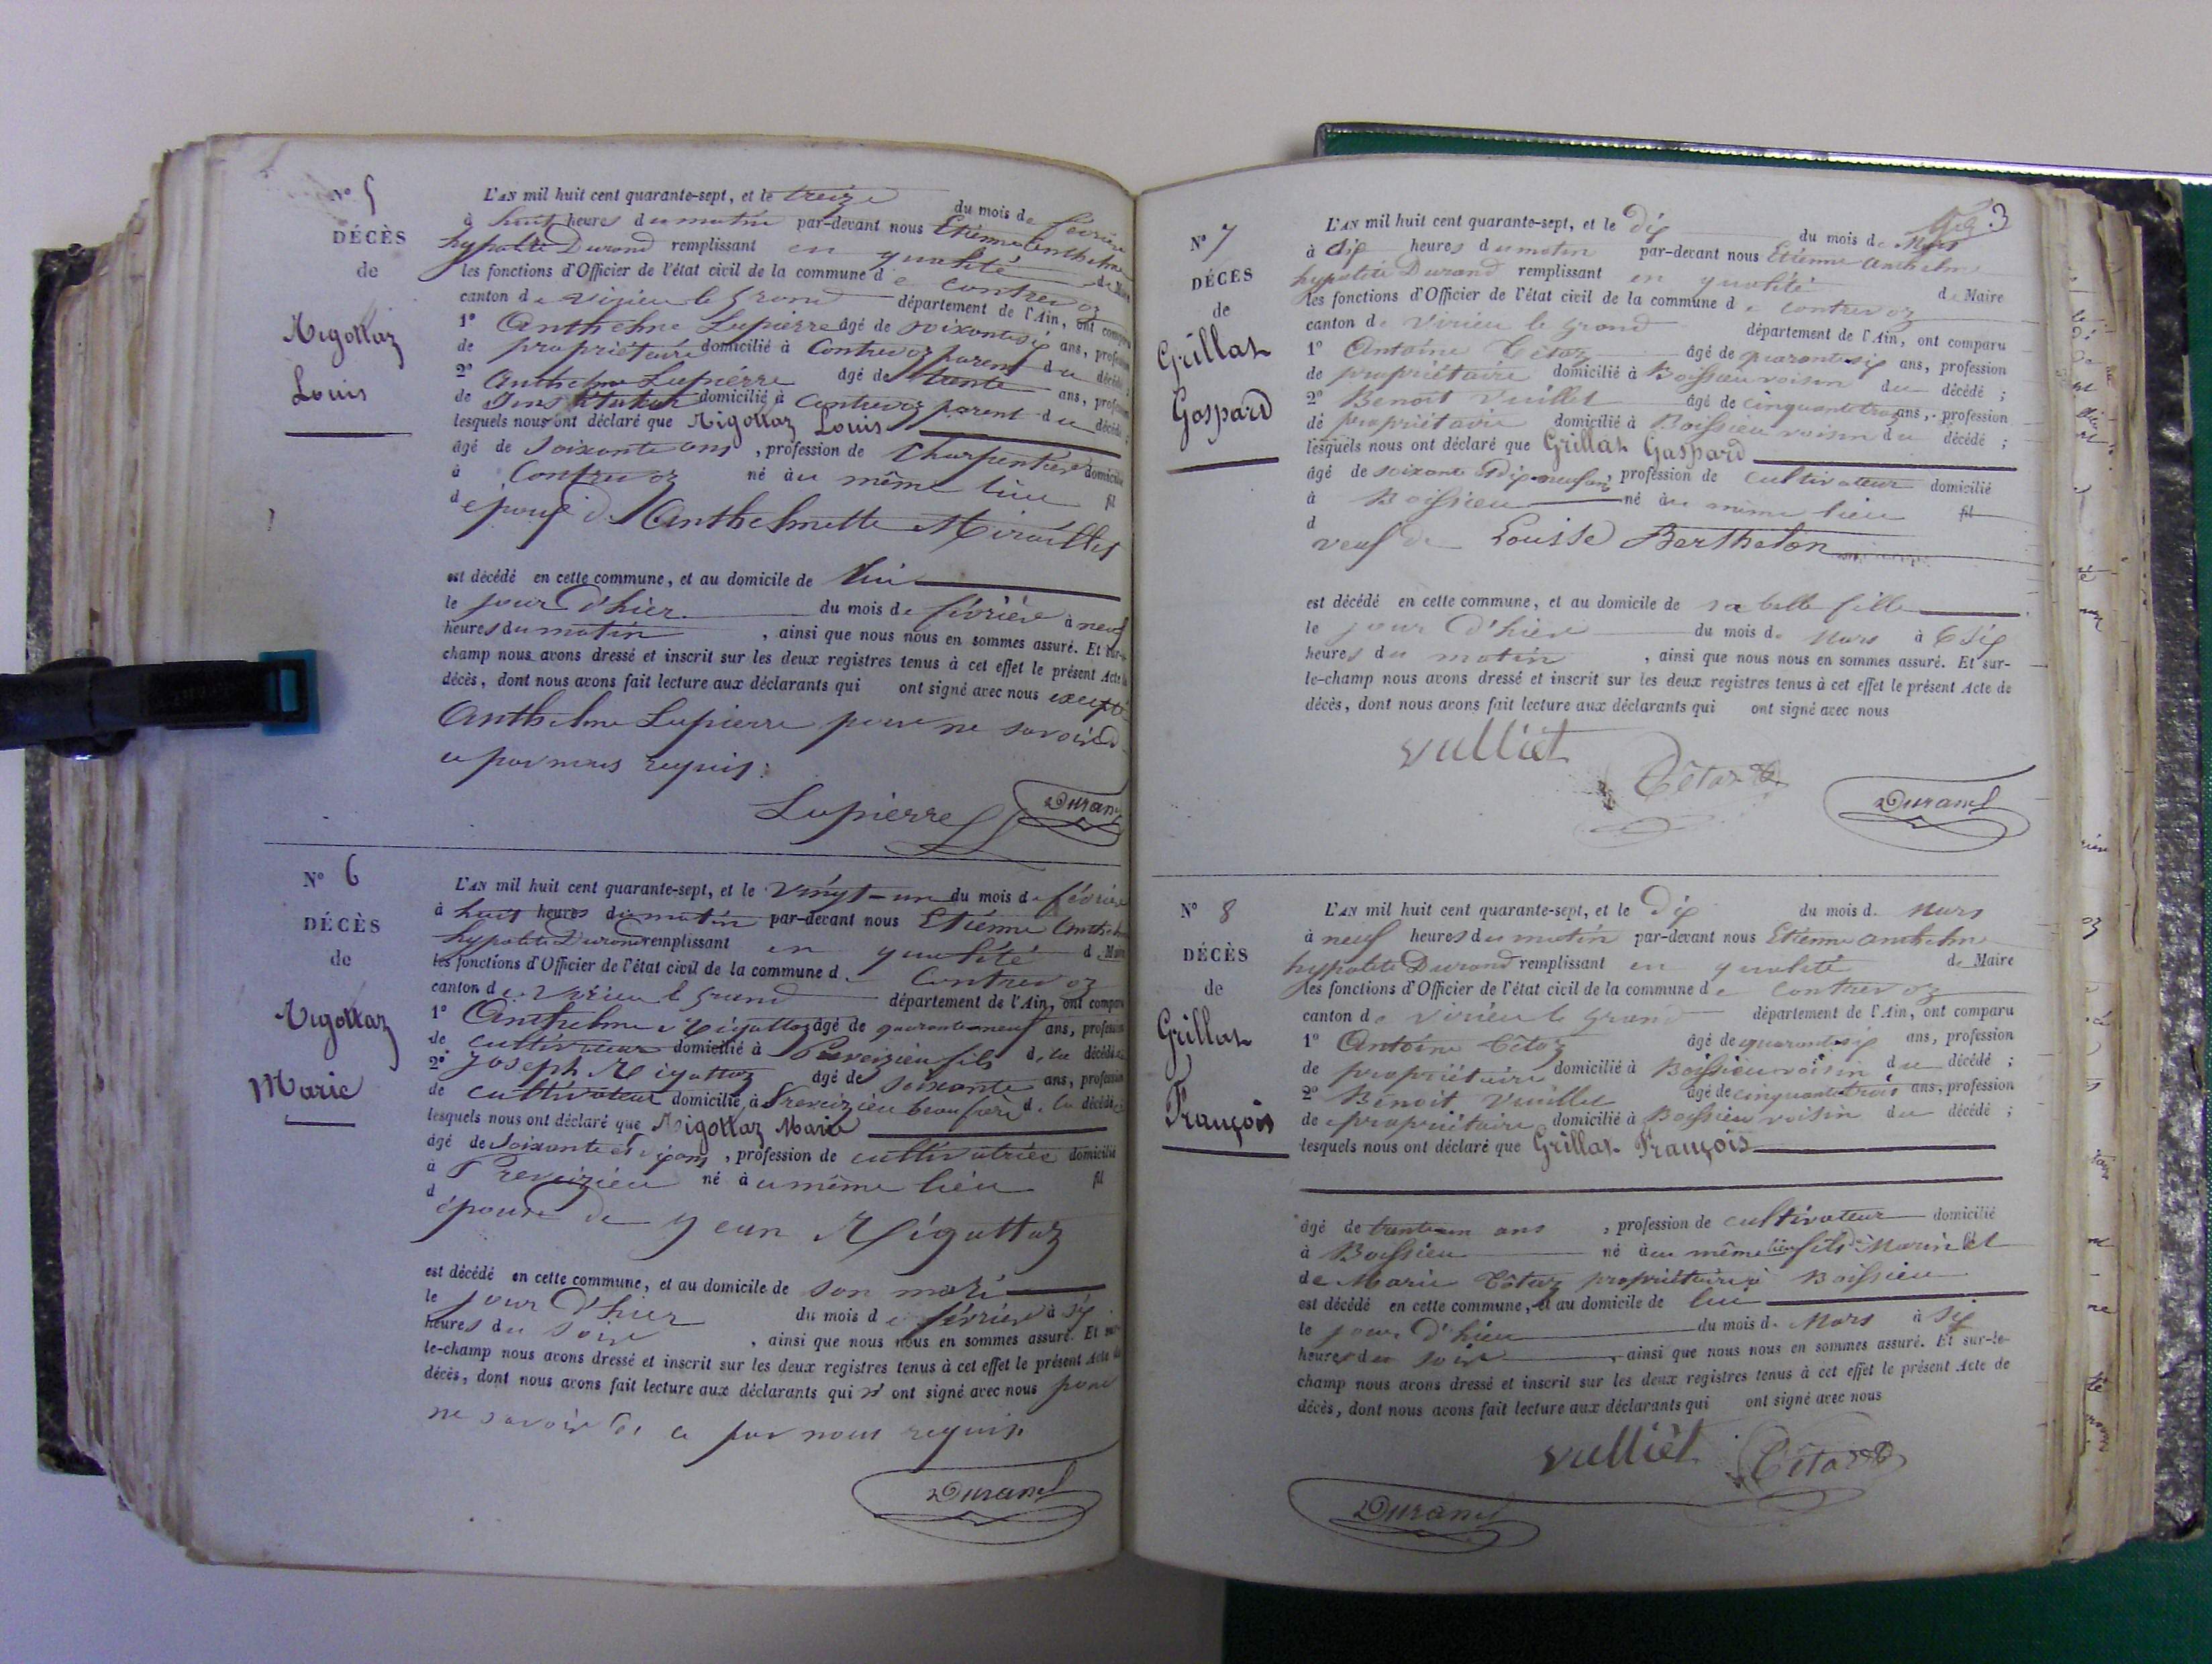 N° 5
DÉCÈS
de
Migottaz
Louis
L'AN mil huit cent quarante-sept, et le treize du mois de février
à huit heures du matin par-devant nous Etienne Anthelme
hypolite Durand remplissant en qualité de Maire
les fonctions d'Officier de l'état civil de la commune de Contrevoz
canton de Virieu le Grand département de l'Ain, ont comparu
1° Anthelme Lupierre âgé de soixante six ans, profession
de propriétaire domicilié à Contrevoz parent du décédé;
2° Anthelme Lupierre âgé de trente ans, profession
de domicilié à Contrevoz parent du décédé;
lesquels nous ont déclaré que Migottaz Louis
âgé de soixante ans, profession de charpentier domicilié
à Contrevoz né àu même lieu fil
d époux de Anthelmette
est décédé en cette commune, et au domicile de lui
le jour d'hier du mois de février à neuf
heures du matin, ainsi que nous nous en sommes assuré. Et sur-le-
champ nous avons dressé et inscrit sur les deux registres tenus à cet effet le présent Acte de
décès, dont nous avons fait lecture aux déclarants qui ont signé avec nous excepté
Anthelme Lupierre pour ne savoir de
ce par nous requis.
Lupierre Durand
N° 6
DÉCÈS
de
Migottaz
Marie
L'AN mil huit cent quarante-sept, et le vingt-un du mois de février
à huit heures du matin par-devant nous Etienne Anthelme
hypolite Durand remplissant en qualité de Maire
les fonctions d'Officier de l'état civil de la commune de Contrevoz
canton de Virieu le Grand département de l'Ain, ont comparu
1° Anthelme Migottaz âgé de quarante neuf ans, profession
de cultivateur domicilié à Preveizieu fils de la décédée
2° Joseph Migottaz âgé de soixante ans, profession
de cultivateur domicilié à Preveizieu beau frère de la décédée
lesquels nous ont déclaré que Migottaz Marie
âgé de soixante et dix ans, profession de cultivatrice domicilié
à Preveizieu né à u même lieu fil
d épouse de jean Migottaz
est décédé en cette commune, et au domicile de son mari
le jour d'hier du mois de février à six
heures du soir, ainsi que nous nous en sommes assuré. Et sur-
le-champ nous avons dressé et inscrit sur les deux registres tenus à cet effet le présent Acte de
décès, dont nous avons fait lecture aux déclarants qui n'ont signé avec nous pour
ne savoir de ce par nous requis
Durand
3
N° 7
DÉCÈS
de
Grillat
Gaspard
L'AN mil huit cent quarante-sept, et le dix du mois de Mars
à dix heures du matin par-devant nous Etienne Anthelme
hypolite Durand remplissant en qualité de Maire
les fonctions d'Officier de l'état civil de la commune de Contrevoz
canton de Virieu le Grand département de l'Ain, ont comparu
1° Antoine Tétaz âgé de quarante six ans, profession
de propriétaire domicilié à Boissieu voisin du décédé;
2° Benoit Vuillet âgé de cinquante trois ans, profession
de propriétaire domicilié à Boissieu voisin du décédé;
lesquels nous ont déclaré que Grillat Gaspard
âgé de soixante et dix neuf ans, profession de cultivateur domicilié
à Boissieu né àu même lieu fil
d
veuf de Louise Berthelon
est décédé en cette commune, et au domicile de sa belle fille
le jour d'hier du mois de Mars à six
heures du matin, ainsi que nous nous en sommes assuré. Et sur-
le-champ nous avons dressé et inscrit sur les deux registres tenus à cet effet le présent Acte de
décès, dont nous avons fait lecture aux déclarants qui ont signé avec nous
vulliet Tétaz Durand
N° 8
DÉCÈS
de
Grillat
François
L'AN mil huit cent quarante-sept, et le Dix du mois de Mars
à neuf heures du matin par-devant nous Etienne Anthelme
hypolite Durand remplissant en qualité de Maire
les fonctions d'Officier de l'état civil de la commune de Contrevoz
canton de Virieu le Grand département de l'Ain, ont comparu
1° Antoine Tétaz âgé de quarante six ans, profession
de propriétaire domicilié à Boissieu voisin du décédé;
2° Benoit Vuillet âgé de cinquante trois ans, profession
de propriétaire domicilié à Boissieu voisin du décédé;
lesquels nous ont déclaré que Grillat François
âgé de trente un ans, profession de cultivateur domicilié
à Boissieu né àu même lieu fils de Marin et
de Marie Tétaz propriétaire à Boissieu
est décédé en cette commune, et au domicile de lui
le jour d'hier du mois de Mars à six
heures du soir, ainsi que nous nous en sommes assuré. Et sur-le-
champ nous avons dressé et inscrit sur les deux registres tenus à cet effet le présent Acte de
décès, dont nous avons fait lecture aux déclarants qui ont signé avec nous
vulliet Tétaz
Durand